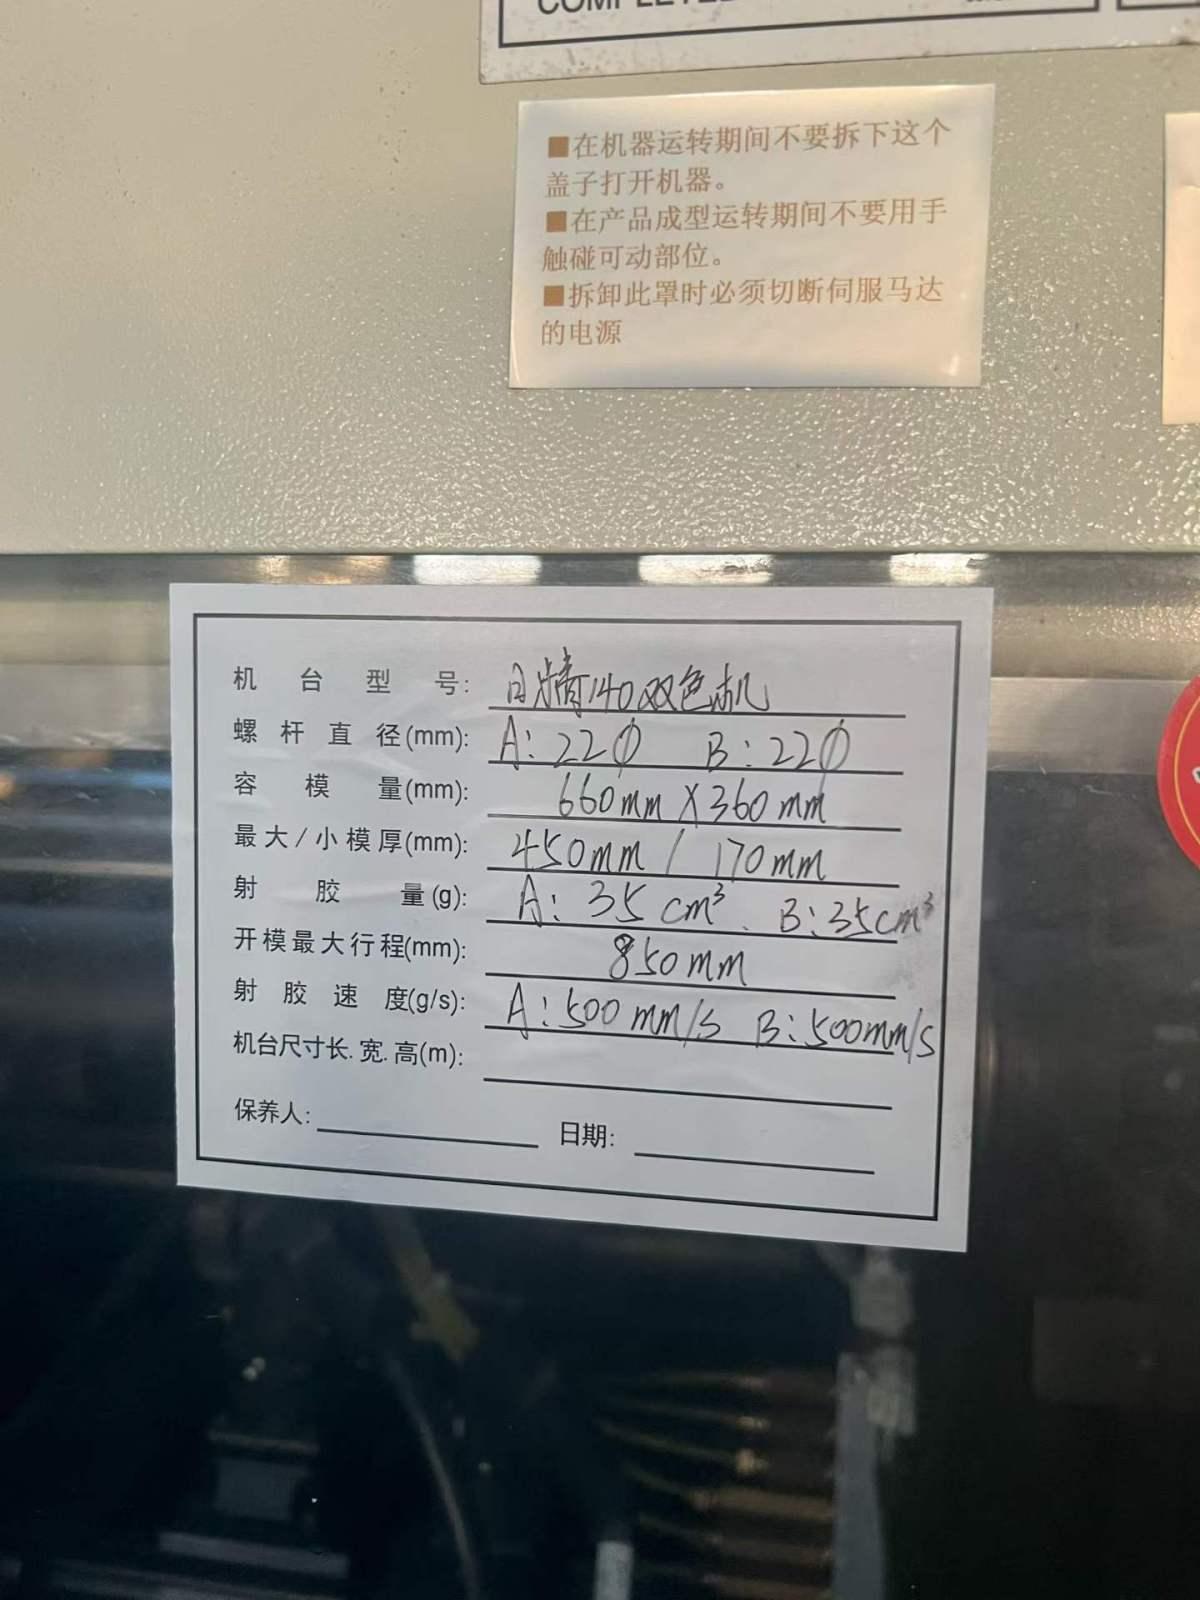 ■在机器运转期间不要拆下这个
盖子打开机器。
■在产品成型运转期间不要用手
触碰可动部位。
■拆卸此罩时必须切断伺服马达
的电源
机台型号: 日精140双色机
螺杆直径(mm): A: 22φ B: 22φ
容模量(mm): 660mm X 360mm
最大/小模厚(mm): 450mm / 170mm
射胶量(g): A: 35 cm³、B: 35cm³
开模最大行程(mm): 850mm
射胶速度(g/s): A: 500 mm/s B: 500mm/s
机台尺寸长.宽.高(m):
保养人: 日期: